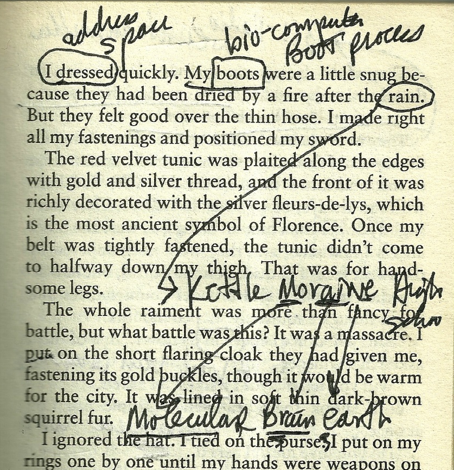 address space
bio-computer
BOOT process
I dressed quickly. My boots were a little snug be-
cause they had been dried by a fire after the rain.
But they felt good over the thin hose. I made right
all my fastenings and positioned my sword.
The red velvet tunic was plaited along the edges
with gold and silver thread, and the front of it was
richly decorated with the silver fleurs-de-lys, which
is the most ancient symbol of Florence. Once my
belt was tightly fastened, the tunic didn't come
to halfway down my thigh. That was for hand-
some legs.
Kettle Moraine High
School
The whole raiment was more than fancy for
battle, but what battle was this? It was a massacre. I
put on the short flaring cloak they had given me,
fastening its gold buckles, though it would be warm
for the city. It was lined in soft thin dark-brown
squirrel fur.
Molecular Brain earth
I ignored the hat. I tied on the purse. I put on my
rings one by one until my hands were weapons on